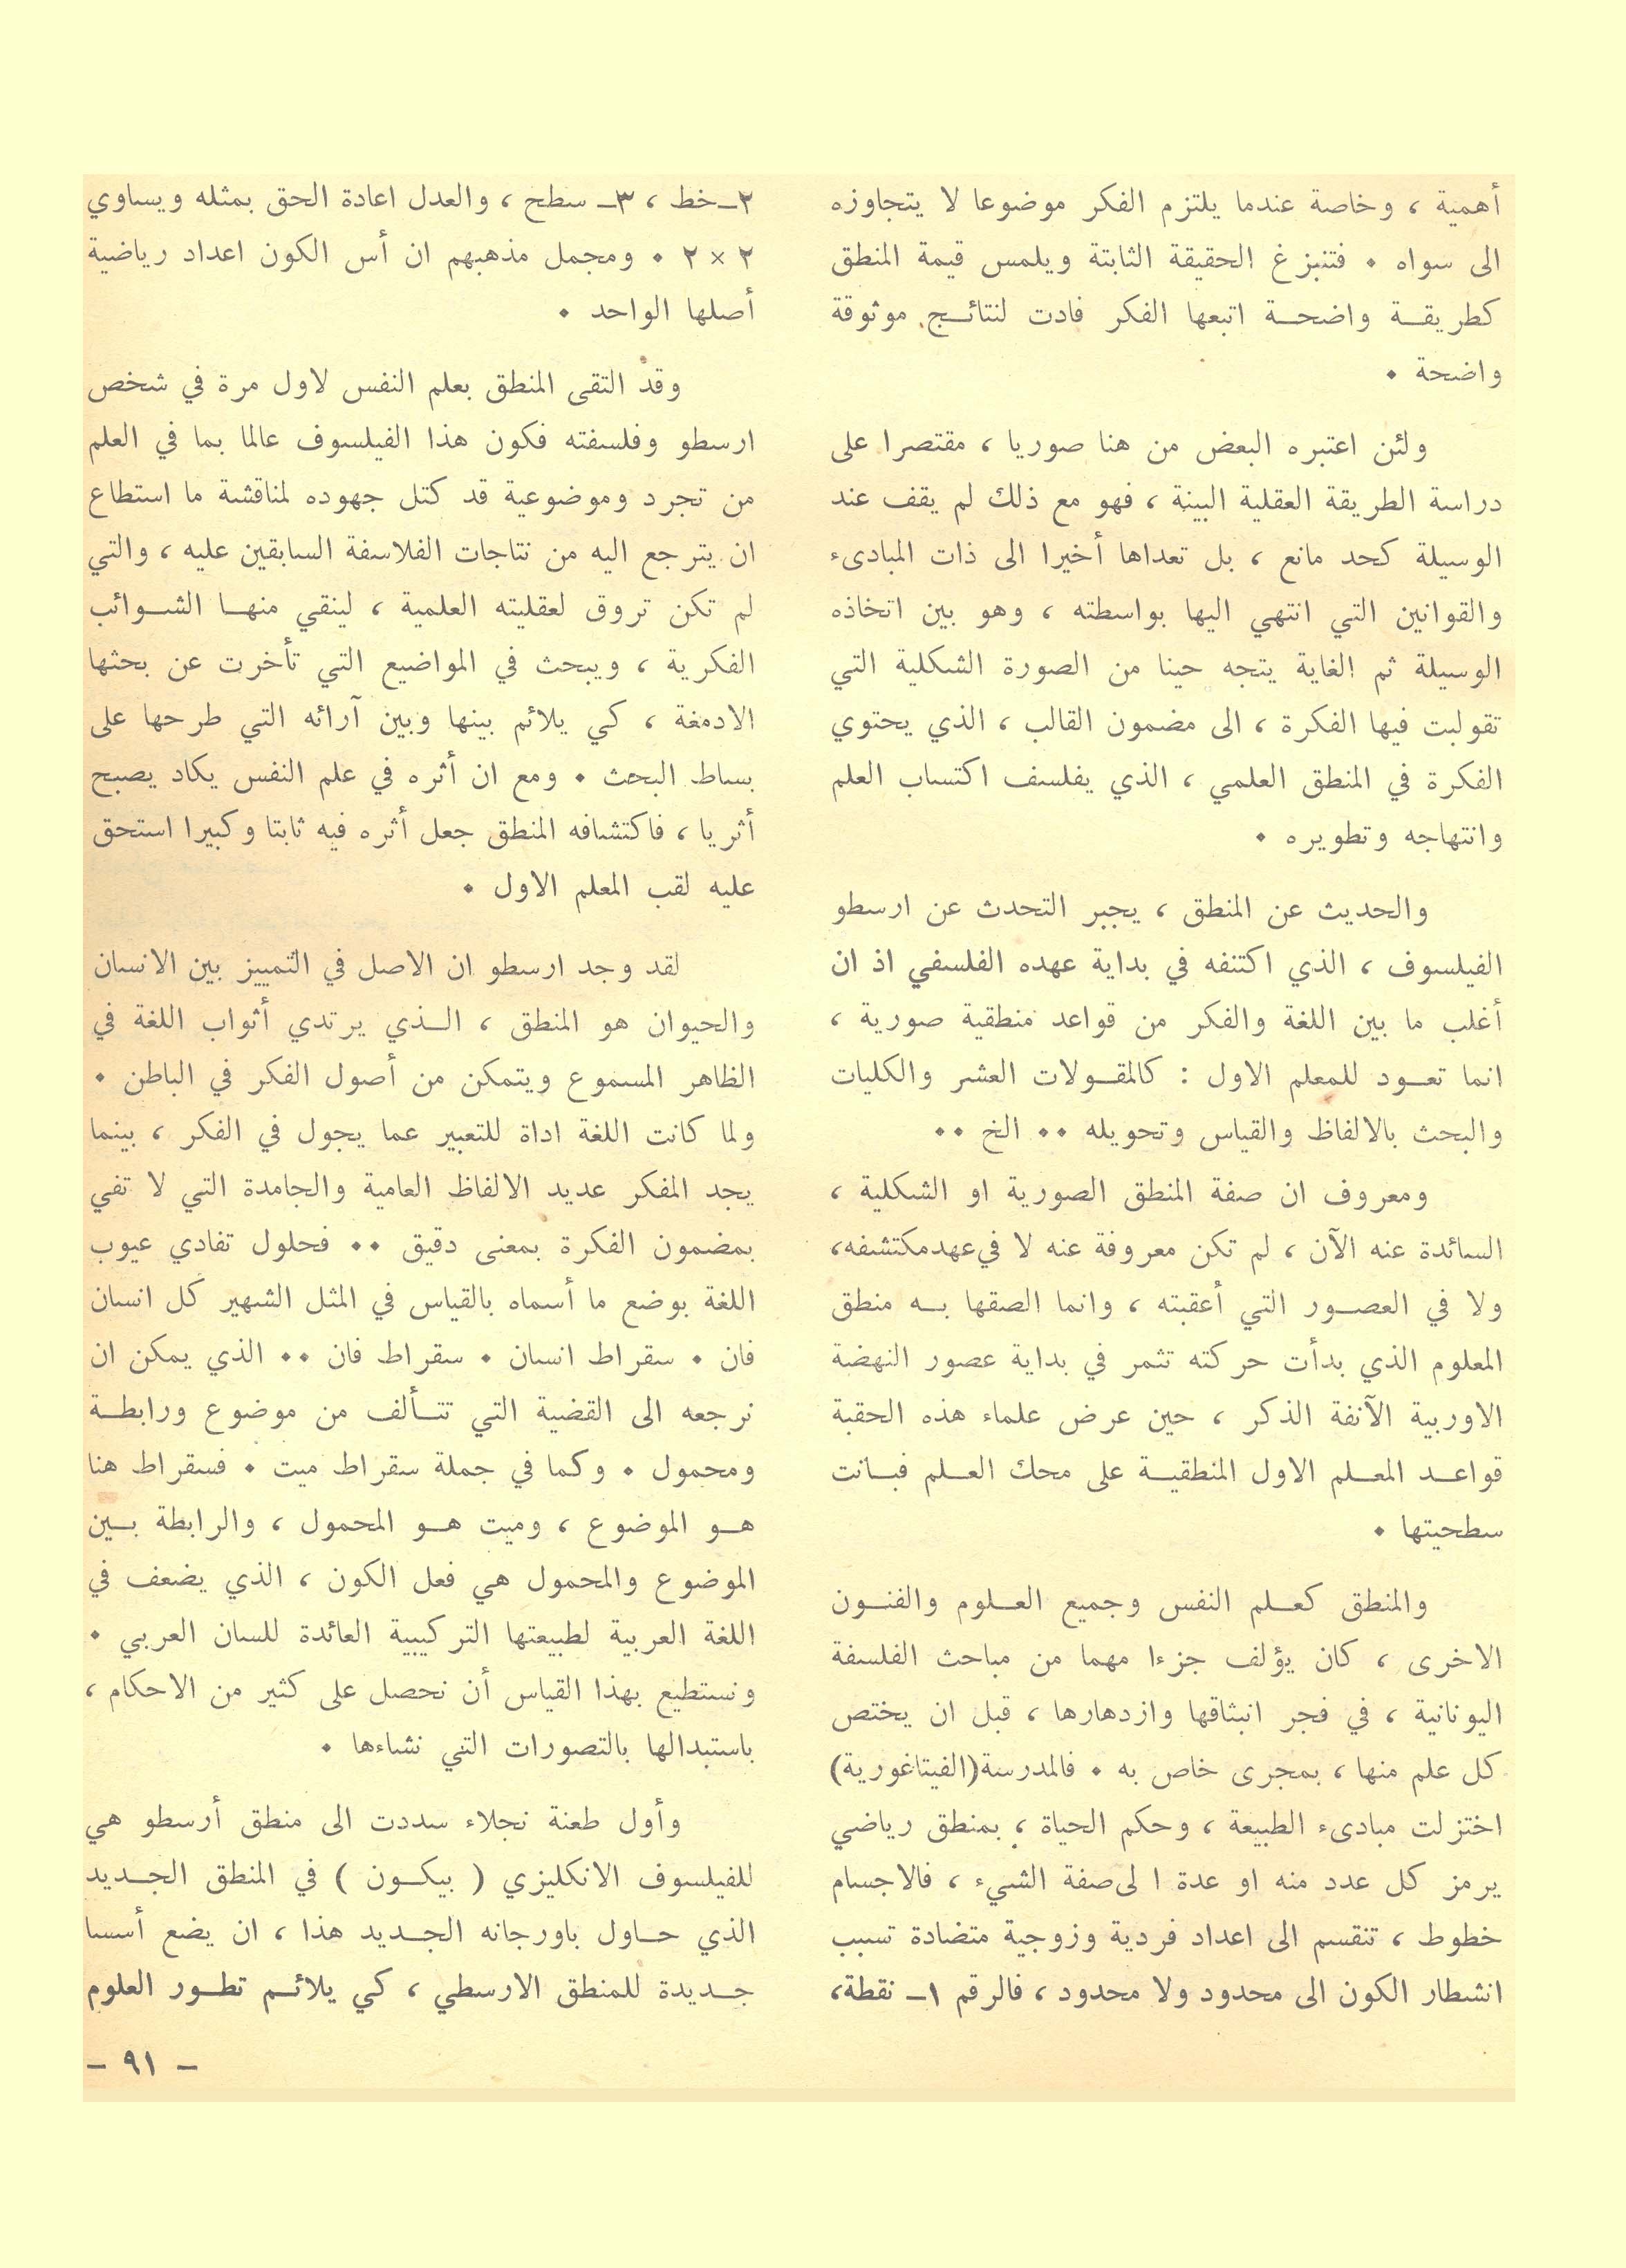 أهمية ، وخاصة عندما يلتزم الفكر موضوعا لا يتجاوزه
الى سواه • فتنبزغ الحقيقة الثابتة ويلمس قيمة المنطق
كطريقة واضحة اتبعها الفكر فادت لنتائج موثوقة
واضحة •
ولئن اعتبره البعض من هنا صوريا ، مقتصرا على
دراسة الطريقة العقلية البينة ، فهو مع ذلك لم يقف عند
الوسيلة كحد مانع ، بل تعداها أخيرا الى ذات المبادىء
والقوانين التي انتهي اليها بواسطته ، وهو بين اتخاذه
الوسيلة ثم الغاية يتجه حينا من الصورة الشكلية التي
تقولبت فيها الفكرة ، الى مضمون القالب ، الذي يحتوي
الفكرة في المنطق العلمي ، الذي يفلسف اكتساب العلم
وانتهاجه وتطويره •
والحديث عن المنطق ، يجبر التحدث عن ارسطو
الفيلسوف ، الذي اكتنفه في بداية عهده الفلسفي اذ ان
أغلب ما بين اللغة والفكر من قواعد منطقية صورية ،
انما تعود للمعلم الاول : كالمقولات العشر والكليات
والبحث بالالفاظ والقياس وتحويله •• الخ ••
ومعروف ان صفة المنطق الصورية او الشكلية ،
السائدة عنه الآن ، لم تكن معروفة عنه لا في عهد مكتشفه،
ولا في العصور التي أعقبته ، وانما الصقها به منطق
المعلوم الذي بدأت حركته تثمر في بداية عصور النهضة
الاوربية الآنفة الذكر ، حين عرض علماء هذه الحقبة
قواعد المعلم الاول المنطقية على محك العلم فبانت
سطحيتها •
والمنطق كعلم النفس وجميع العلوم والفنون
الاخرى ، كان يؤلف جزءا مهما من مباحث الفلسفة
اليونانية ، في فجر انبثاقها وازدهارها ، قبل ان يختص
كل علم منها ، بمجرى خاص به • فالمدرسة (الفيتاغورية)
اختزلت مبادىء الطبيعة ، وحكم الحياة ، بمنطق رياضي
يرمز كل عدد منه او عدة ا لى صفة الشيء ، فالاجسام
خطوط ، تنقسم الى اعداد فردية وزوجية متضادة تسبب
انشطار الكون الى محدود ولا محدود ، فالرقم ١ـ نقطة،
٢ـ خط ، ٣ـ سطح ، والعدل اعادة الحق بمثله ويساوي
٢ × ٢ • ومجمل مذهبهم ان أس الكون اعداد رياضية
أصلها الواحد •
وقد التقى المنطق بعلم النفس لاول مرة في شخص
ارسطو وفلسفته فكون هذا الفيلسوف عالما بما في العلم
من تجرد وموضوعية قد كتل جهوده لمناقشة ما استطاع
ان يترجع اليه من نتاجات الفلاسفة السابقين عليه ، والتي
لم تكن تروق لعقليته العلمية ، لينقي منها الشوائب
الفكرية ، ويبحث في المواضيع التي تأخرت عن بحثها
الادمغة ، كي يلائم بينها وبين آرائه التي طرحها على
بساط البحث • ومع ان أثره في علم النفس يكاد يصبح
أثريا ، فاكتشافه المنطق جعل أثره فيه ثابتا وكبيرا استحق
عليه لقب المعلم الاول •
لقد وجد ارسطو ان الاصل في التمييز بين الانسان
والحيوان هو المنطق ، الذي يرتدي أثواب اللغة في
الظاهر المسموع ويتمكن من أصول الفكر في الباطن •
ولما كانت اللغة اداة للتعبير عما يجول في الفكر ، بينما
يجد المفكر عديد الالفاظ العامية والجامدة التي لا تفي
بمضمون الفكرة بمعنى دقيق •• فحلول تفادي عيوب
اللغة بوضع ما أسماه بالقياس في المثل الشهير كل انسان
فان • سقراط انسان • سقراط فان •• الذي يمكن ان
نرجعه الى القضية التي تتألف من موضوع ورابطة
ومحمول • وكما في جملة سقراط ميت • فسقراط هنا
هو الموضوع ، وميت هو المحمول ، والرابطة بين
الموضوع والمحمول هي فعل الكون ، الذي يضعف في
اللغة العربية لطبيعتها التركيبية العائدة للسان العربي •
ونستطيع بهذا القياس أن نحصل على كثير من الاحكام ،
باستبدالها بالتصورات التي نشاءها •
وأول طعنة نجلاء سددت الى منطق أرسطو هي
للفيلسوف الانكليزي ( بيكون ) في المنطق الجديد
الذي حاول باورجانه الجديد هذا ، ان يضع أسسا
جديدة للمنطق الارسطي ، كي يلائم تطور العلوم
– ٩١ –